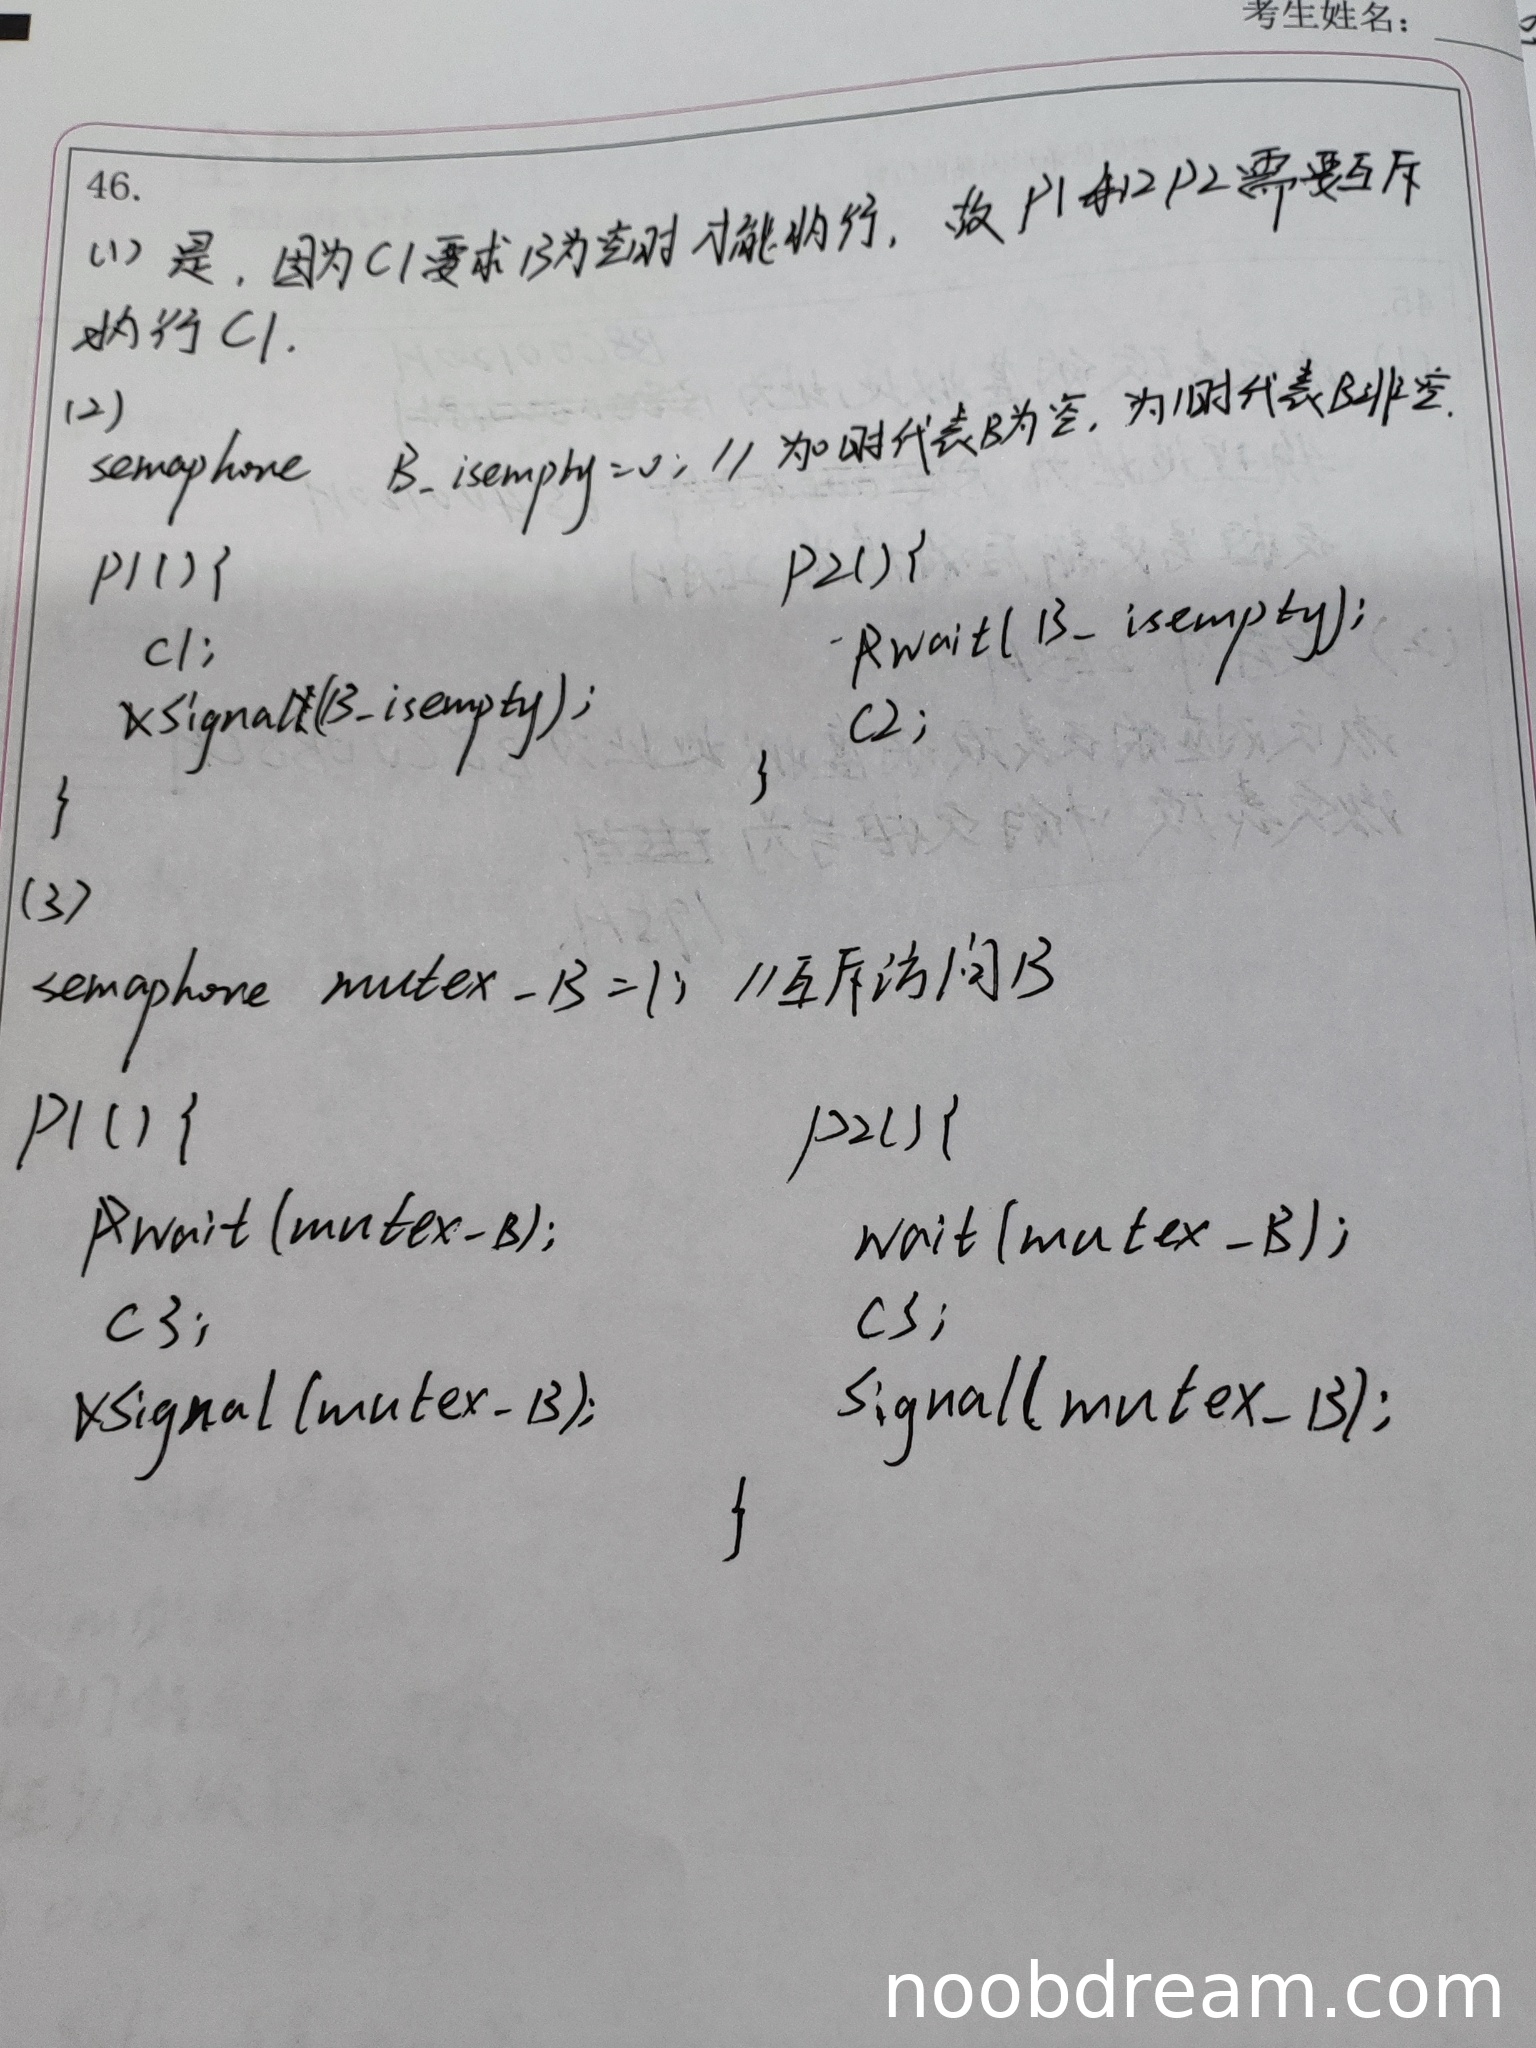 考生姓名：
46.
(1) 是，因为C1要求B为空时才能执行，故P1和P2需要互斥
执行C1.
(2)
semaphore B_isempty=0; // 为0时代表B为空，为1时代表B非空.
P1(){ P2(){
C1; wait(B_isempty);
signal(B_isempty); C2;
} }
(3)
semaphore mutex_B=1; //互斥访问B
P1(){ P2(){
wait(mutex_B); wait(mutex_B);
C3; C3;
signal(mutex_B); signal(mutex_B);
}
noobdream.com